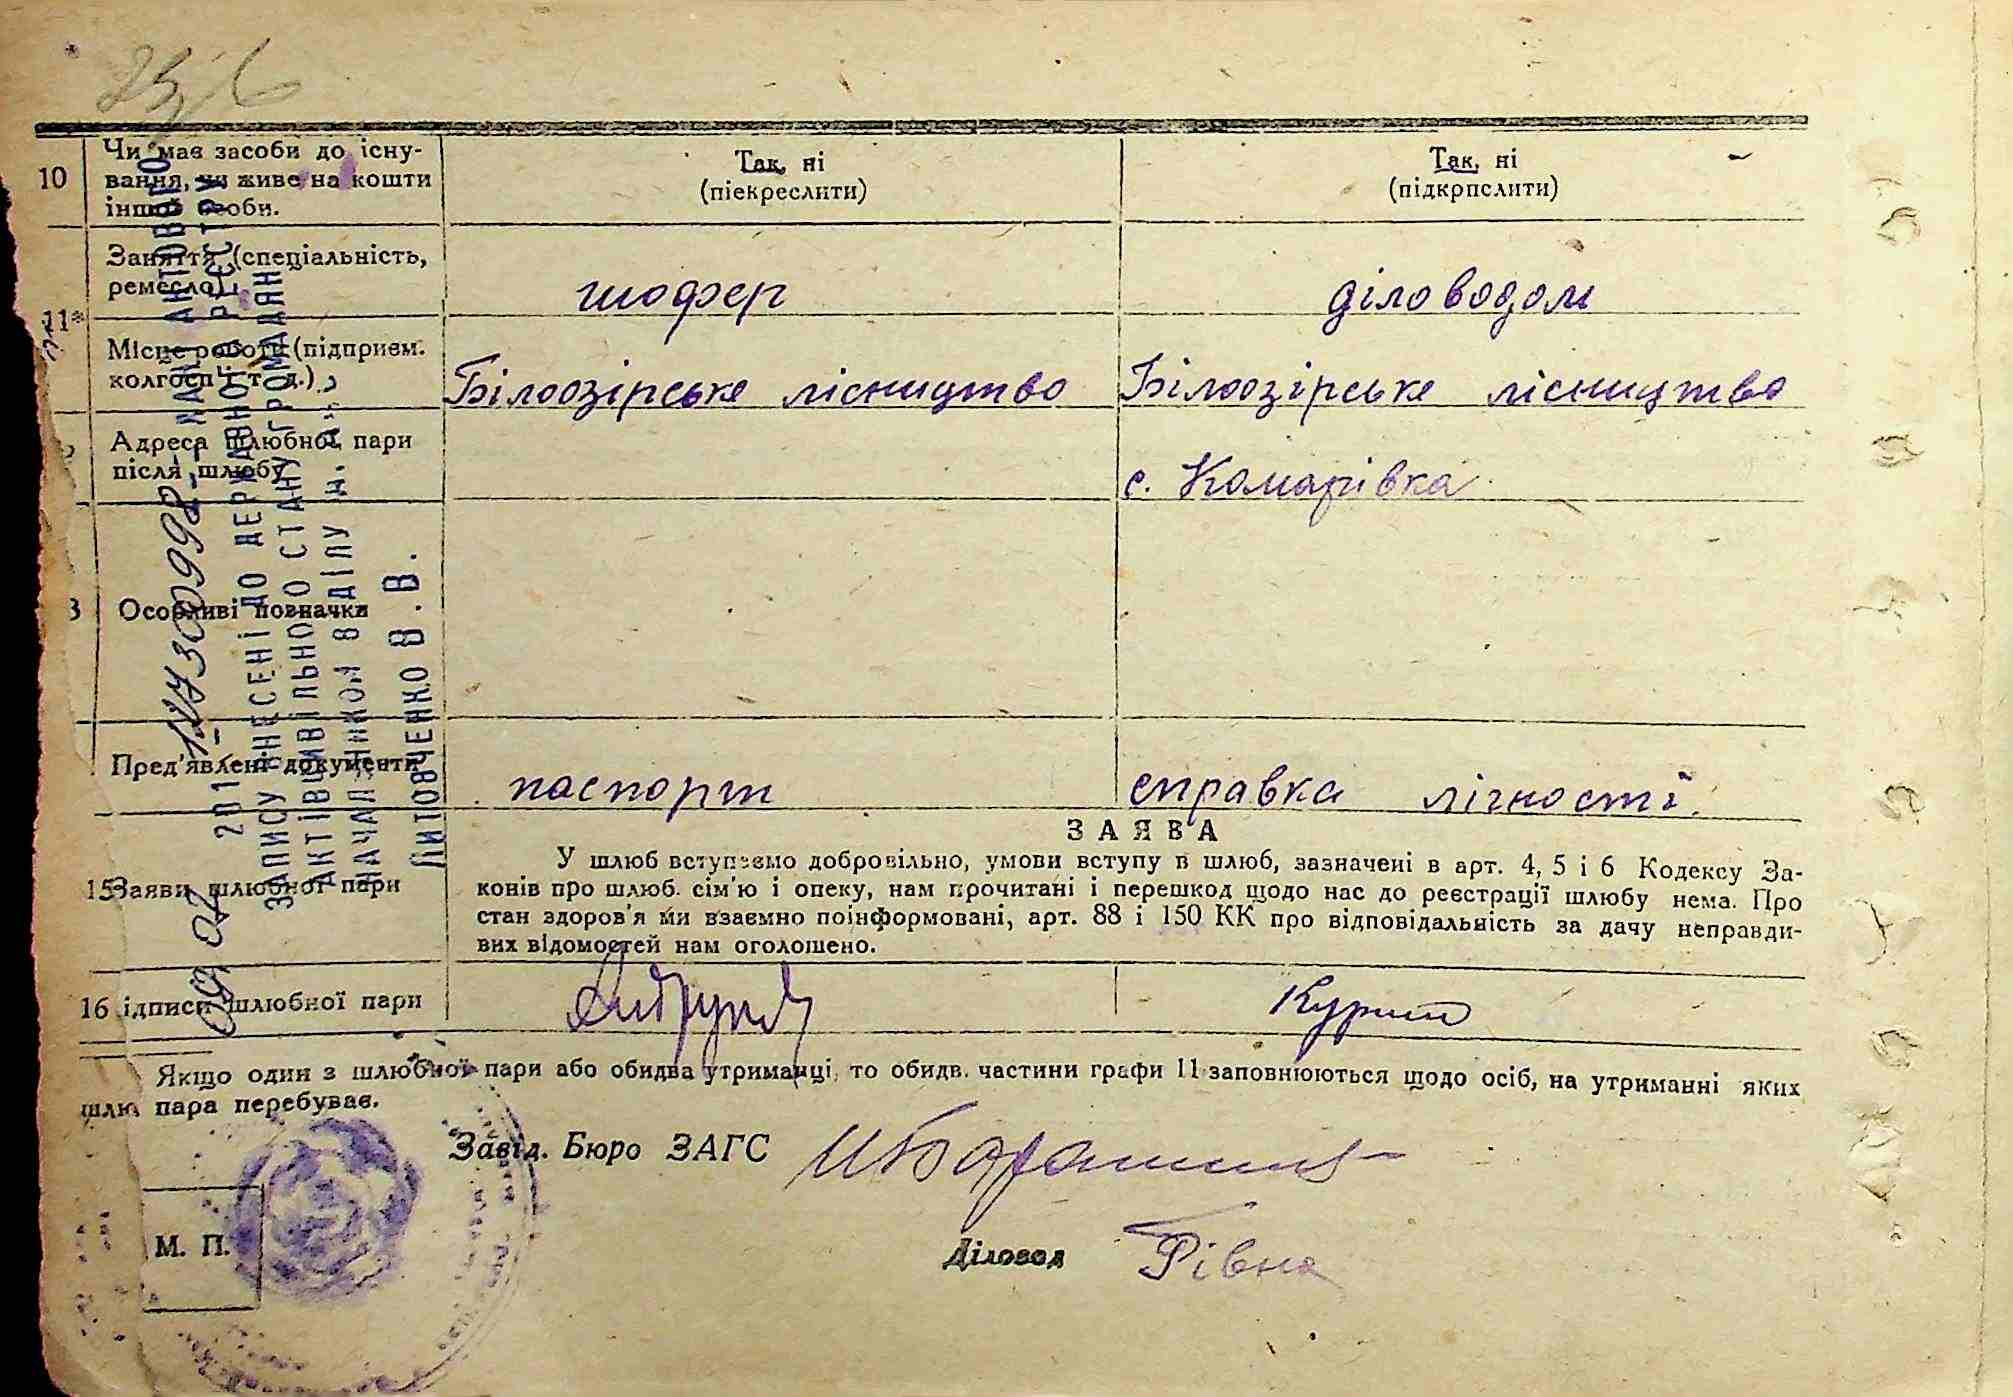 10
Чи має засоби до існу-
вання, чи живе на кошти
іншої особи.
Так, ні
(піекреслити)
Так, ні
(підкрпслити)
11*
Заняття (спеціальність,
ремесло)
шофер
діловодом
Місце роботи (підприєм.
колгосп і т. д.)
Білоозірське лісництво
Білоозірське лісництво
Адреса шлюбної пари
після шлюбу
с. Комарівка
3
Особливі позначки
Пред'явлені документи
паспорт
справка лічності.
ЗАЯВА
15
Заяви шлюбної пари
У шлюб вступаємо добровільно, умови вступу в шлюб, зазначені в арт. 4, 5 і 6 Кодексу За-
конів про шлюб. сім'ю і опеку, нам прочитані і перешкод щодо нас до реєстрації шлюбу нема. Про
стан здоров'я ми взаємно поінформовані, арт. 88 і 150 КК про відповідальність за дачу неправди-
вих відомостей нам оголошено.
16
ідписи шлюбної пари
Якщо один з шлюбної пари або обидва утриманці, то обидв. частини графи 11 заповнюються щодо осіб, на утриманні яких
шлю пара перебуває.
Завід. Бюро ЗАГС
М. П.
Діловод
Рівна
АКТОВОГО
ЗАПИСУ ВНЕСЕНІ ДО ДЕРЖАВНОГО РЕЄСТРУ
АКТІВ ЦИВІЛЬНОГО СТАНУ ГРОМАДЯН
НАЧАЛЬНИКОМ ВІДДІЛУ
Литовченко В.В.